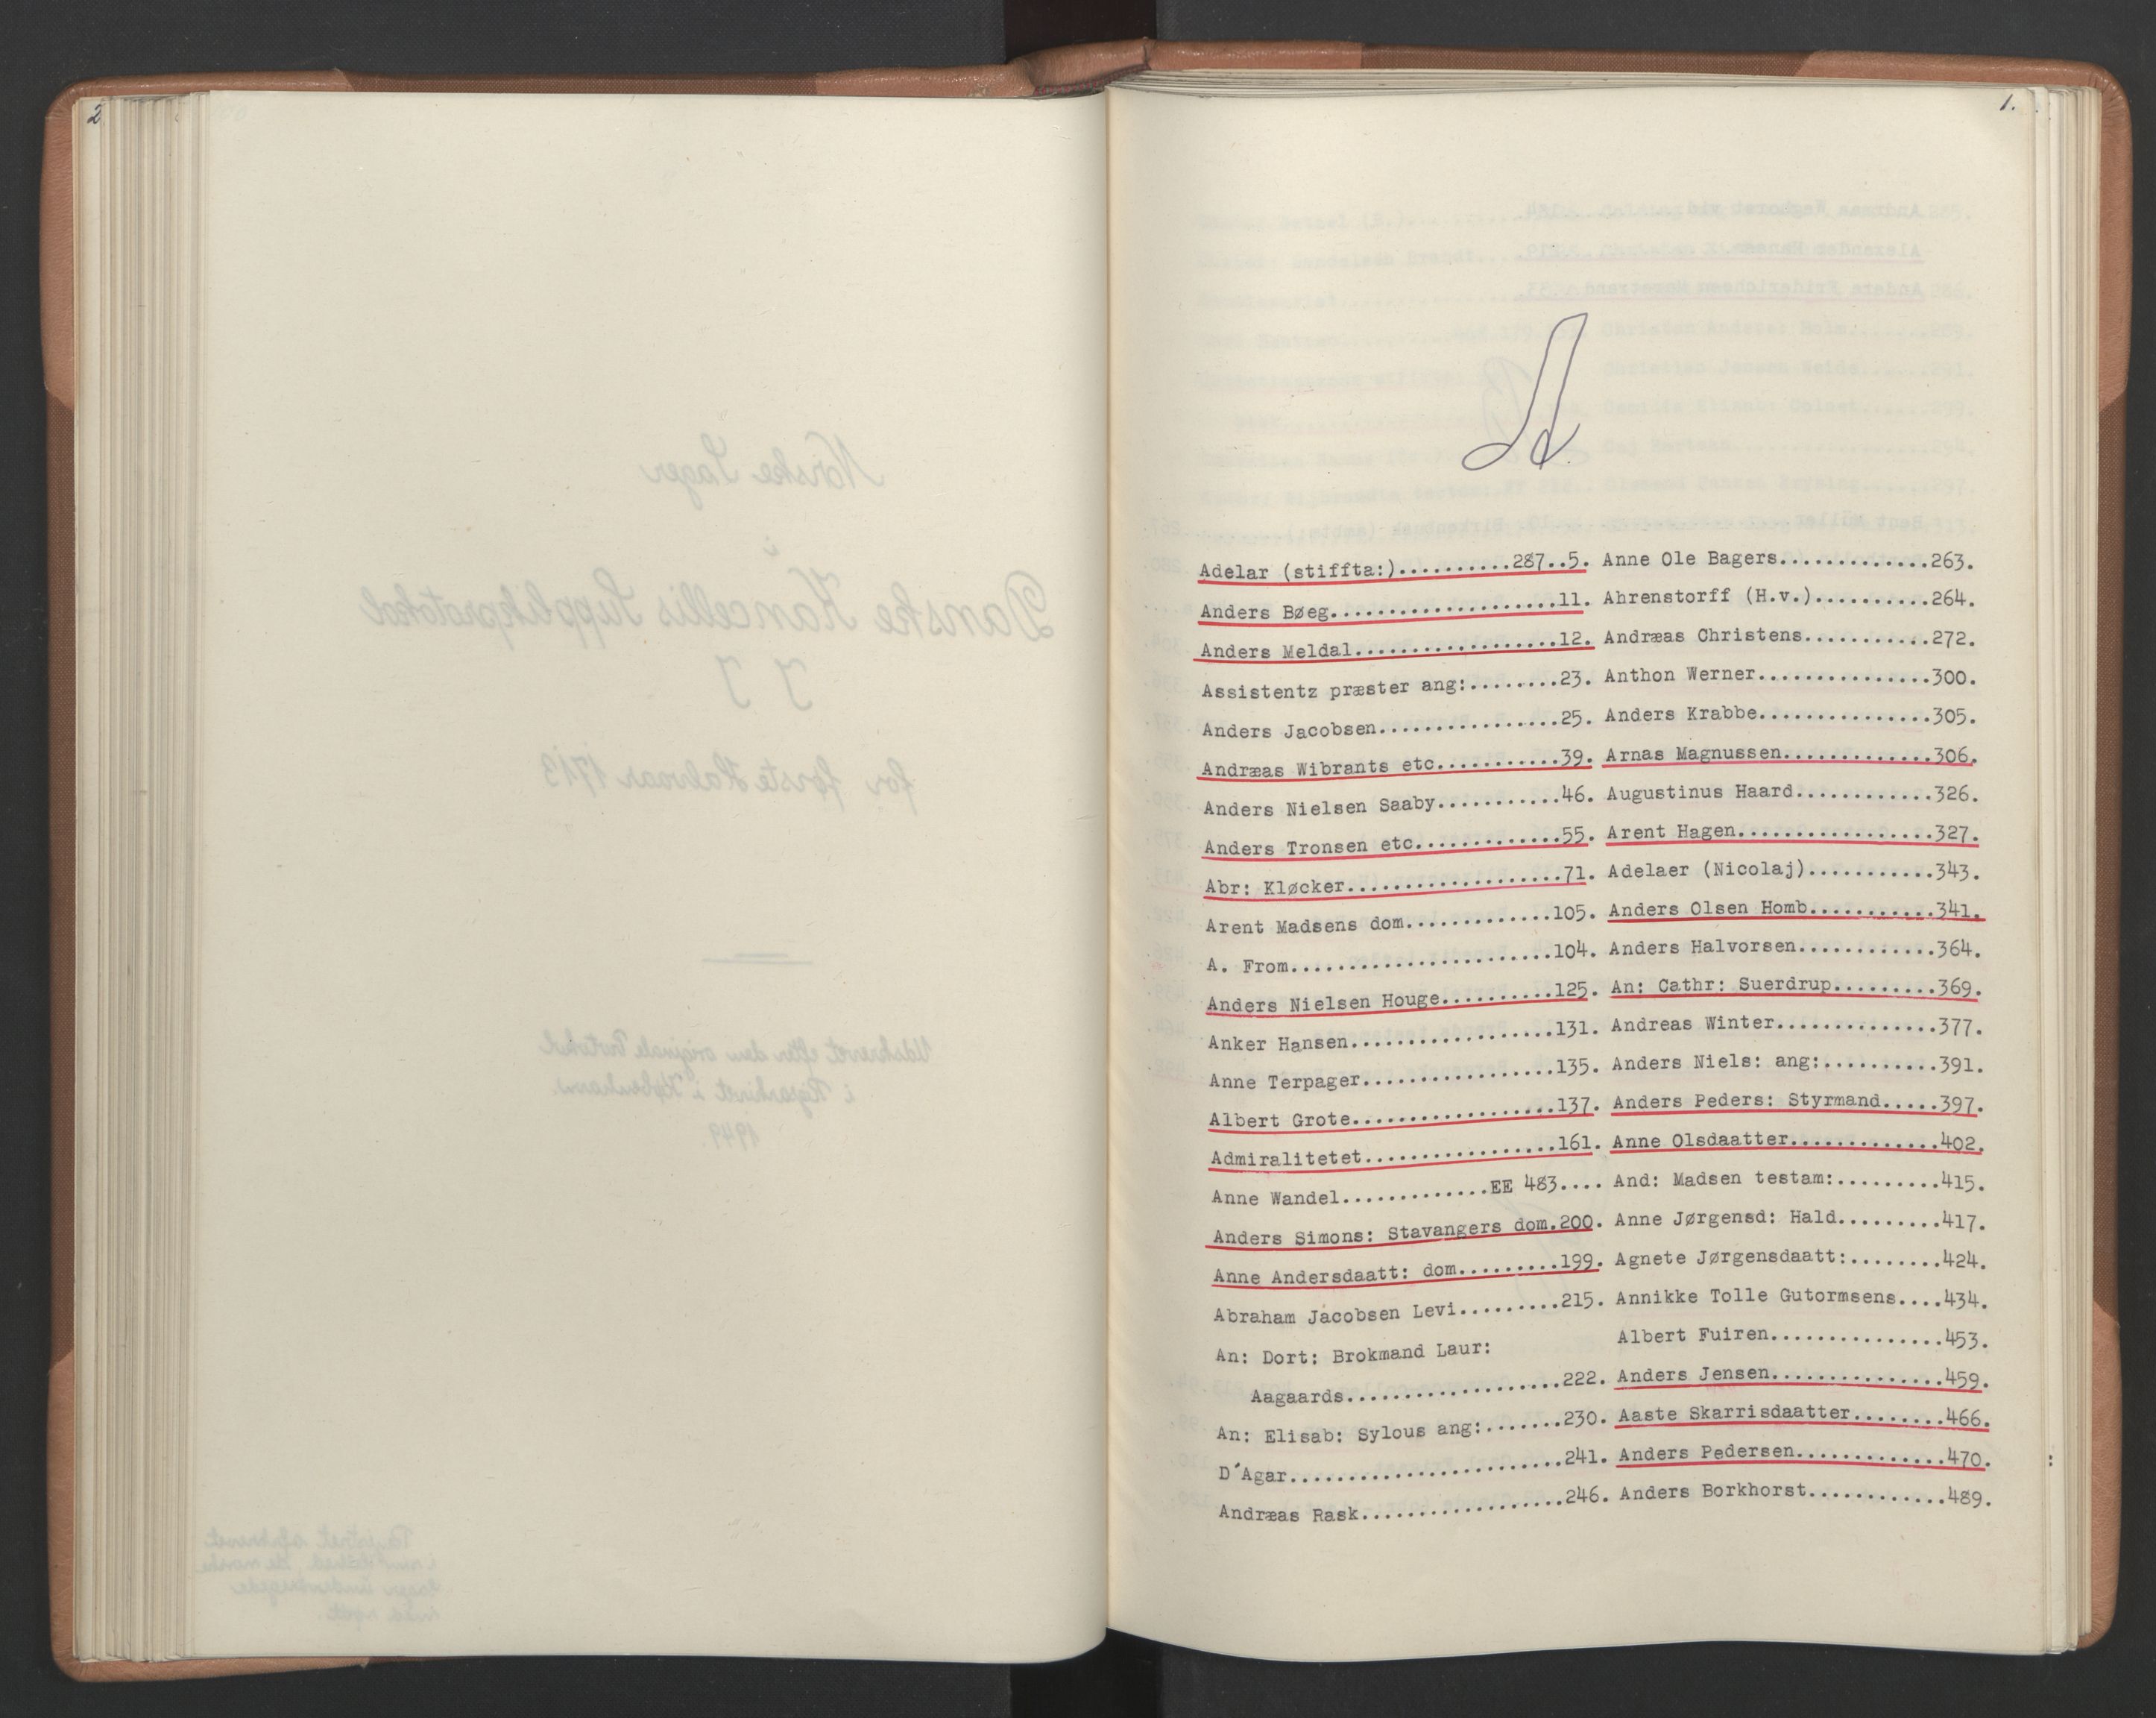 2
1.
A
Adelar (stiffta:)..........287..5.
Anders Bøeg....................11.
Anders Meldal..................12.
Assistentz præster ang:........23.
Anders Jacobsen................25.
Andræas Wibrants etc...........39.
Anders Nielsen Saaby...........46.
Anders Tronsen etc.............55.
Abr: Kløcker...................71.
Arent Madsens dom.............105.
A. From.......................104.
Anders Nielsen Houge..........125.
Anker Hansen..................131.
Anne Terpager.................135.
Albert Grote..................137.
Admiralitetet.................161.
Anne Wandel.............EE 483....
Anders Simons: Stavangers dom.200.
Anne Andersdaatt: dom.........199.
Abraham Jacobsen Levi.........215.
An: Dort: Brokmand Laur:
Aagaards...................222.
An: Elisab: Sylous ang:.......230.
D´Agar........................241.
Andræas Rask..................246.
Anne Ole Bagers.............263.
Ahrenstorff (H.v.)..........264.
Andræas Christens...........272.
Anthon Werner...............300.
Anders Krabbe...............305.
Arnas Magnussen.............306.
Augustinus Haard............326.
Arent Hagen.................327.
Adelaer (Nicolaj)...........343.
Anders Olsen Homb...........341.
Anders Halvorsen............364.
An: Cathr: Suerdrup.........369.
Andreas Winter..............377.
Anders Niels: ang:..........391.
Anders Peders: Styrmand.....397.
Anne Olsdaatter.............402.
And: Madsen testam:.........415.
Anne Jørgensd: Hald.........417.
Agnete Jørgensdaatt:........424.
Annikke Tolle Gutormsens....434.
Albert Fuiren...............453.
Anders Jensen...............459.
Aaste Skarrisdaatter........466.
Anders Pedersen.............470.
Anders Borkhorst............489.